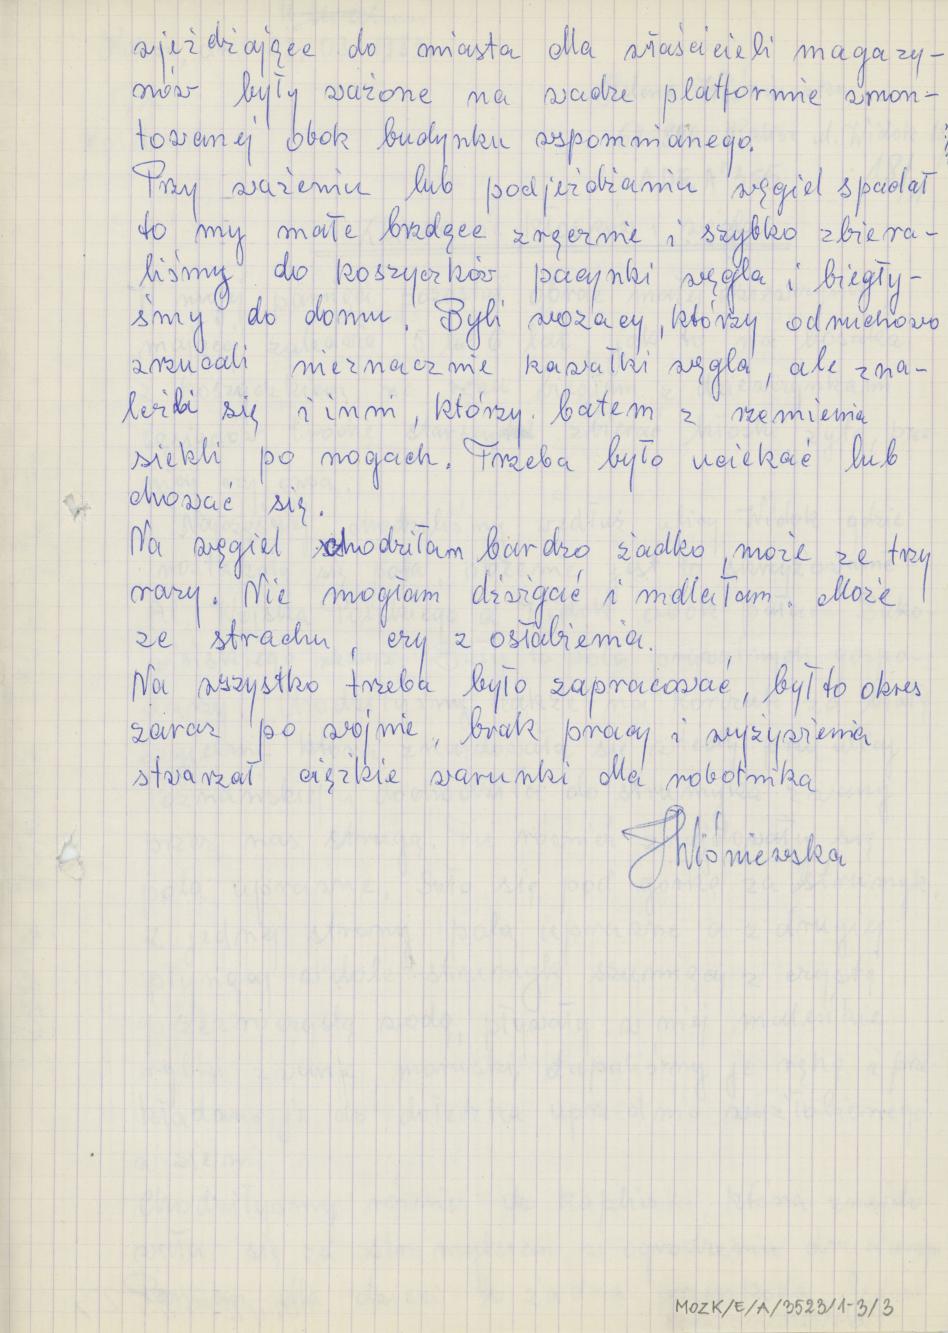 wjeżdżające do miasta dla właścicieli magazy-
nów były ważone na wadze platformie zmon-
towanej obok budynku wspomnianego.
Przy ważeniu lub podjeżdżaniu węgiel spadał
to my małe brzdące zręcznie i szybko zbiera-
liśmy do koszyczków pacynki węgla i biegły-
śmy do domu. Byli wozacy, którzy odruchowo
zrzucali nieznacznie kawałki węgla, ale zna-
leźli się i inni, którzy batem z rzemienia
siekli po nogach. Trzeba było uciekać lub
chować się.
Na węgiel chodziłam bardzo żadko, może ze trzy
razy. Nie mogłam dźwigać i mdlałam. Może
ze strachu, czy z osłabienia.
Na wszystko trzeba było zapracować, był to okres
zaraz po wojnie, brak pracy i wyżywienia
stwarzał ciężkie warunki dla robotnika
Wiśniewska
MOZK/E/A/3523/1-3/3